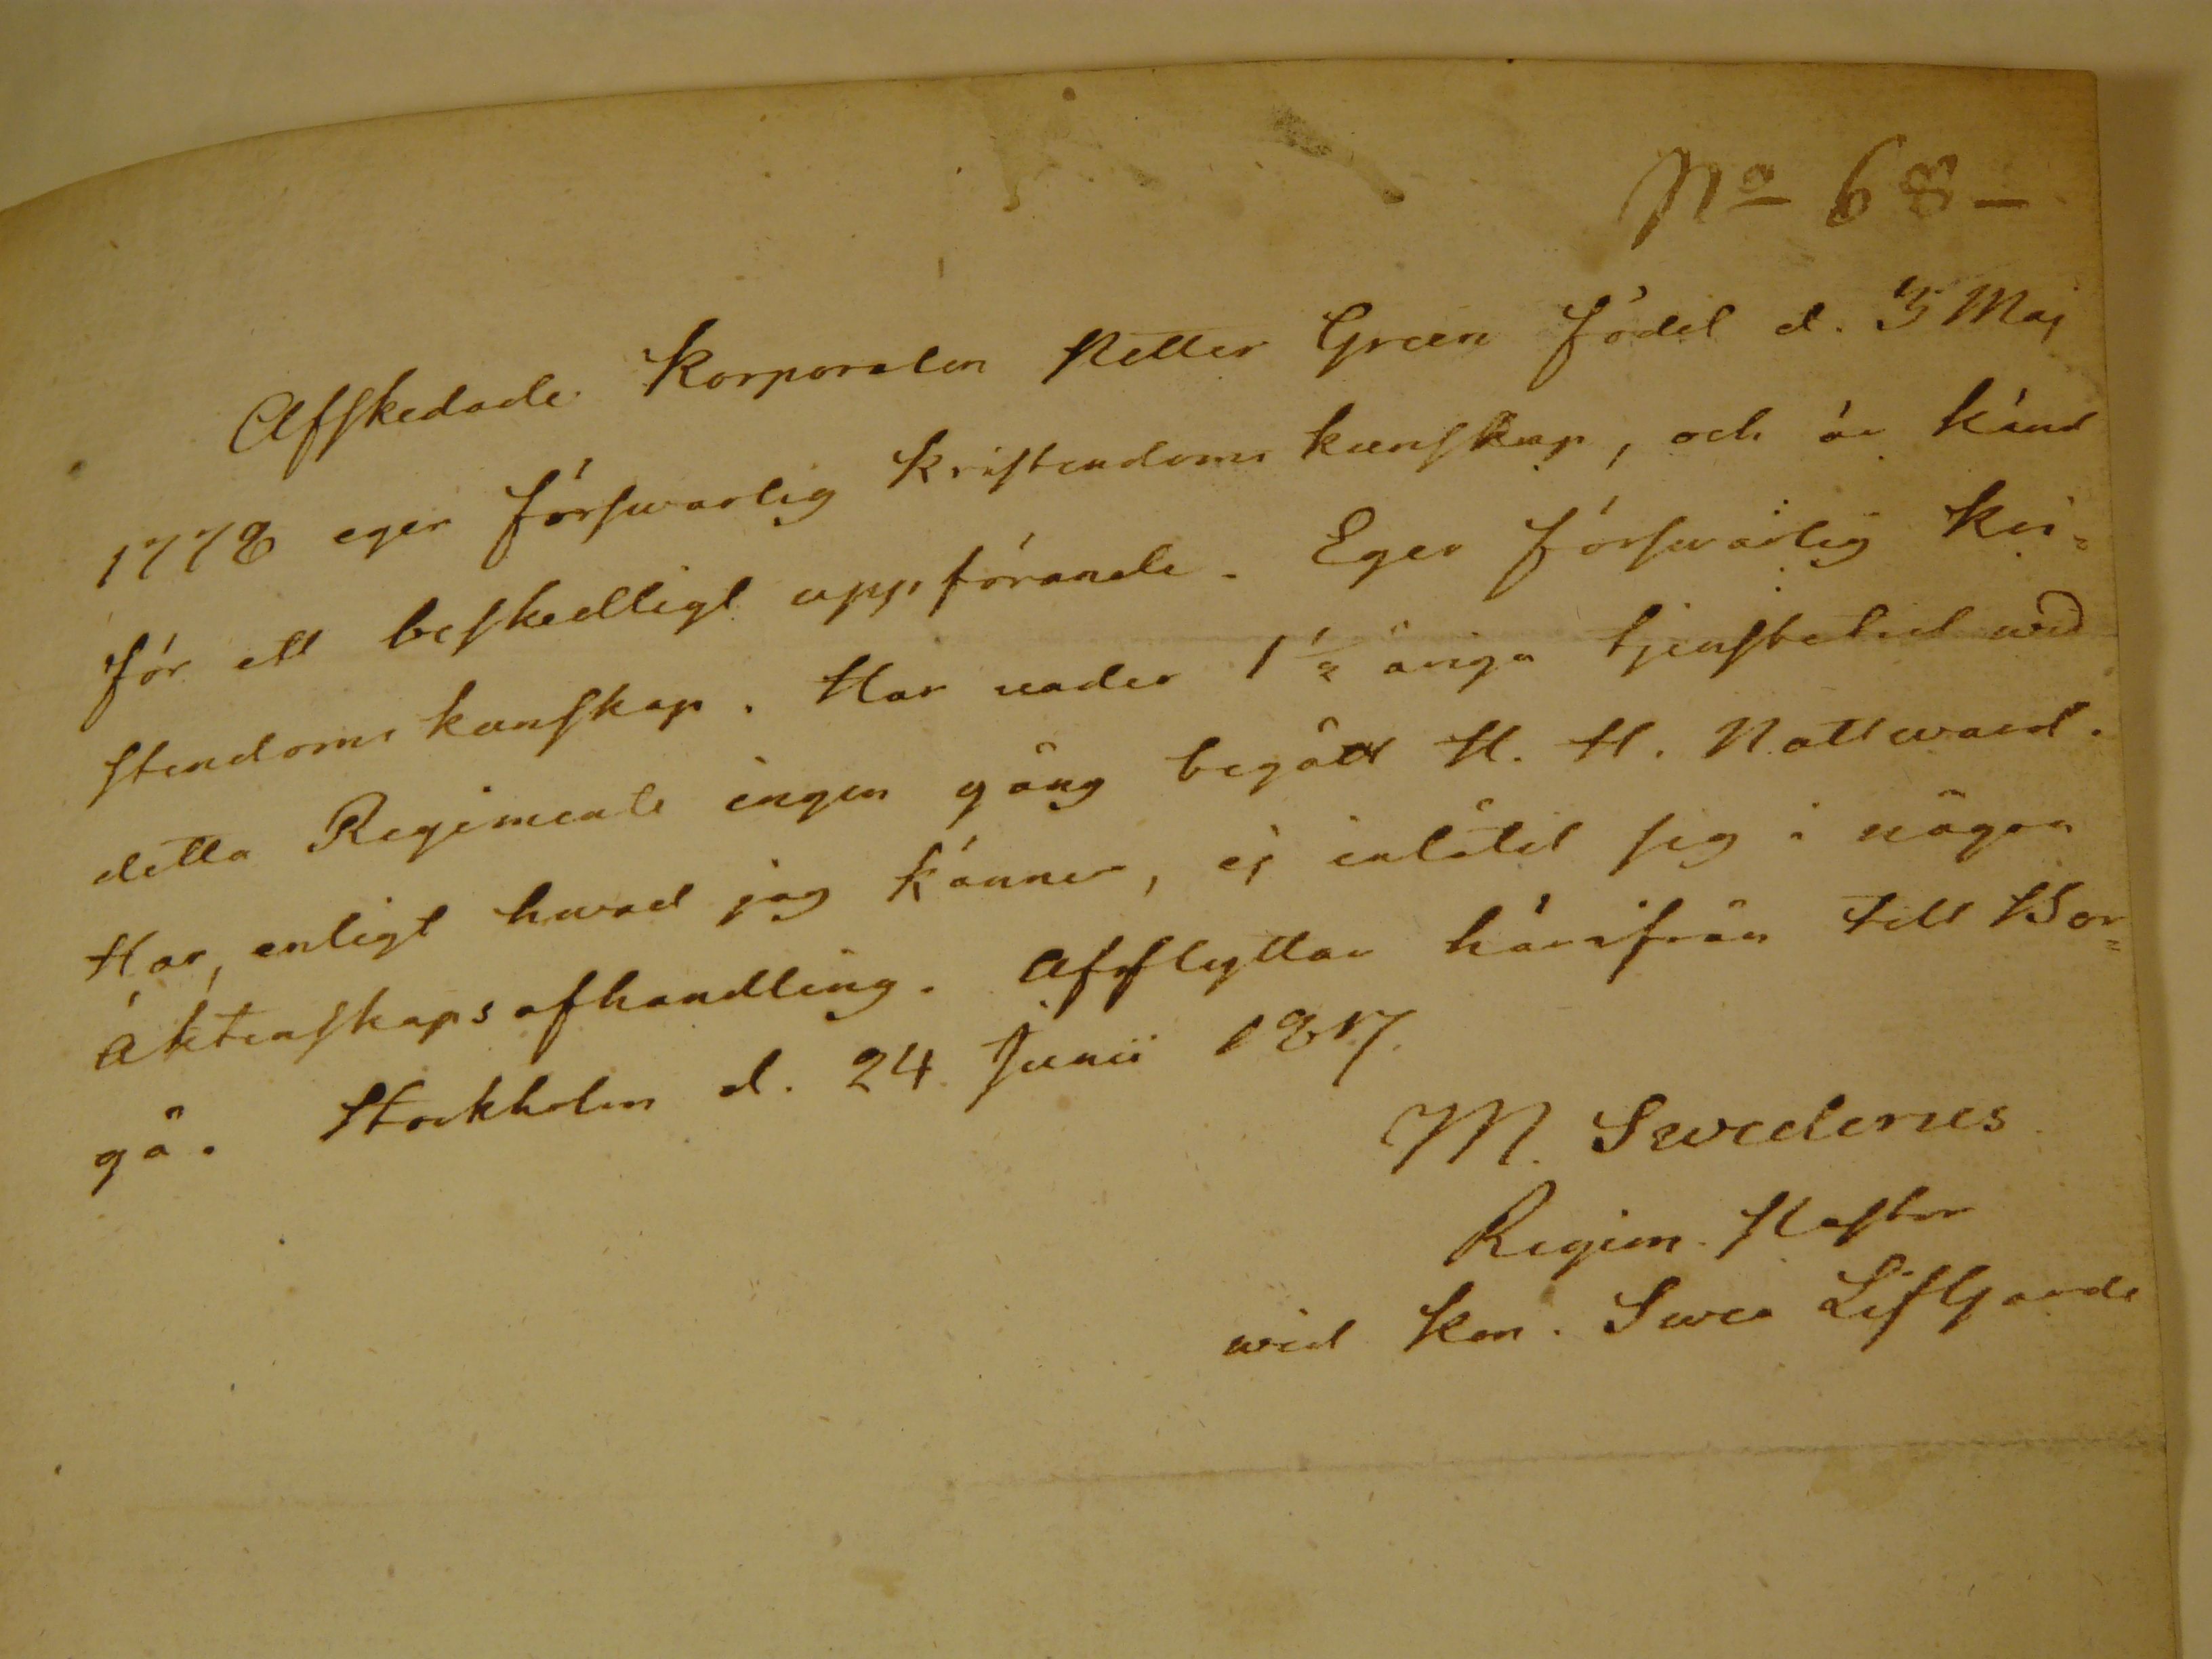 No 68 —
Afskedade Korporalen Petter Green född d. 5 Maj
1778 eger försvarlig Kristendoms kunskap, och är känd
för ett beskedligt uppförande. Eger försvarlig Kri=
stendoms kunskap. Har under 1 1/2 åriga tjenstetid wid
detta Regimente ingen gång begått H. H. Nattward.
Har, enligt hwad jag känner, ej inlåtit sig i någon
äktenskaps afhandling. Afflyttar härifrån till Bor=
gå. Stockholm d. 24 Junii 1817.
M. Swederus
Regim. Pastor
wid Kon. Swea LifGarde